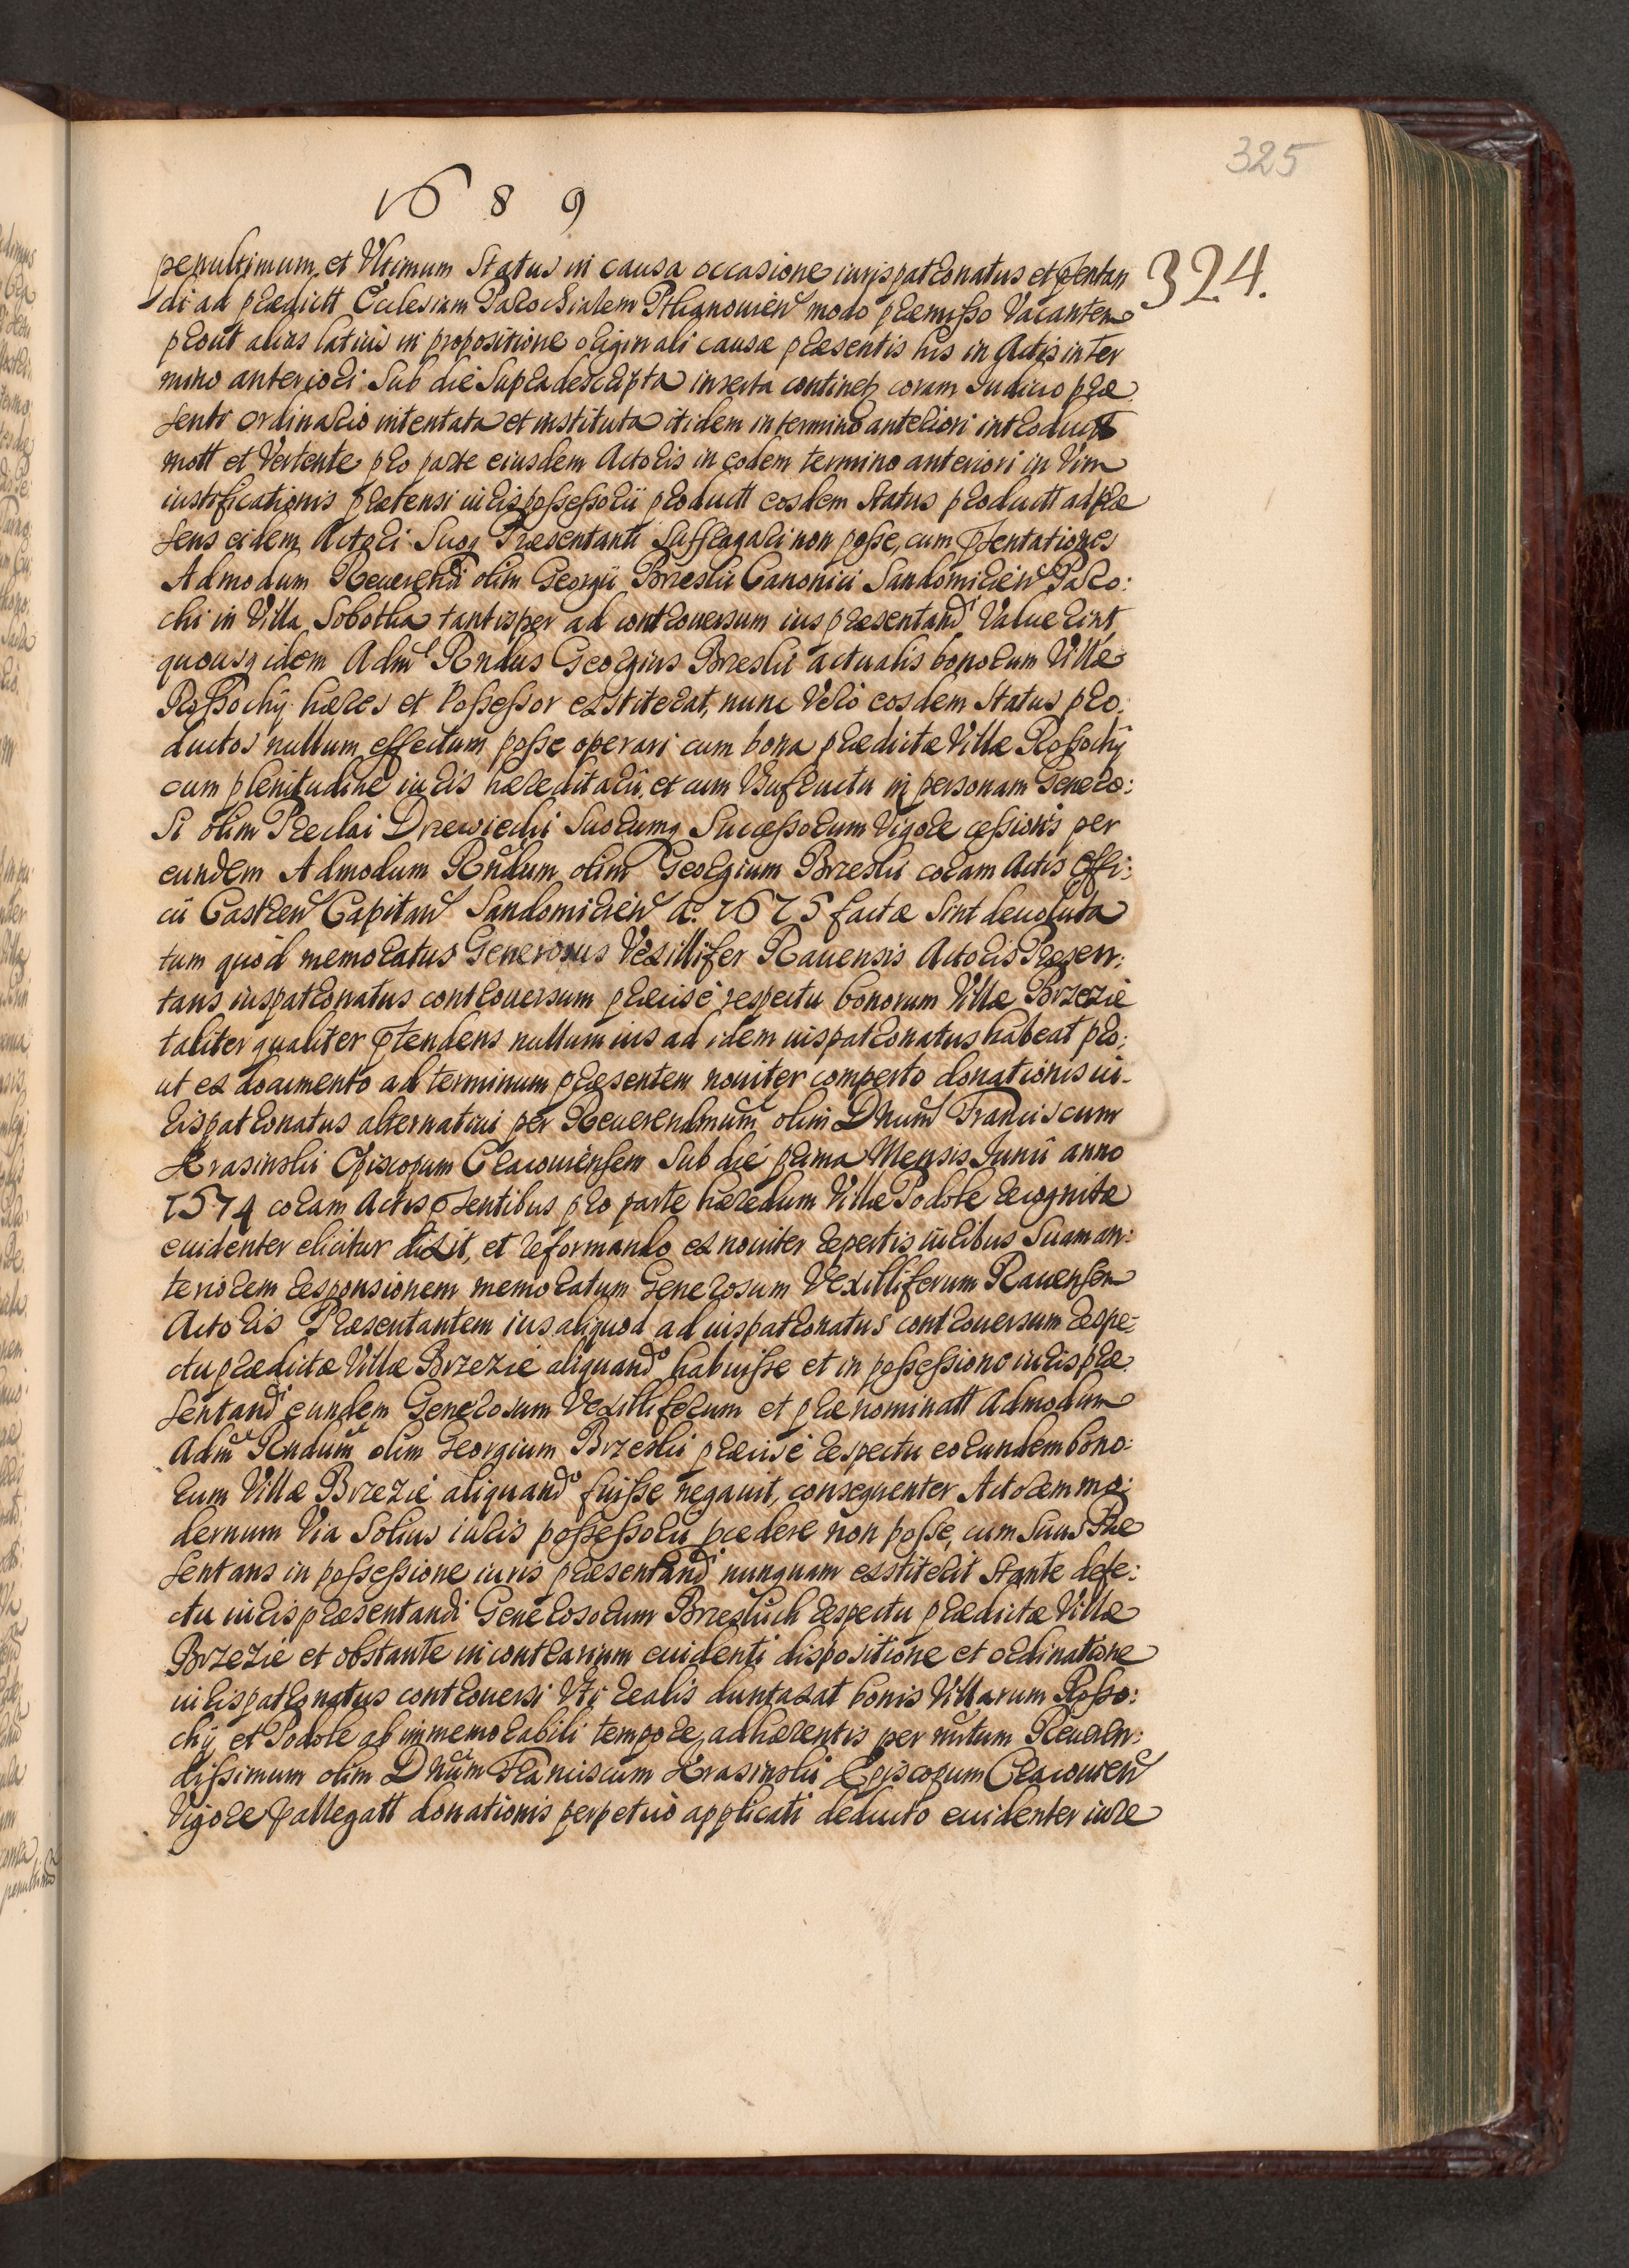 325
1689
324.
penultimum, et Ultimum Status in causa occasione iurispatronatus et pſentan
di ad prædictt Ecclesiam Parochialem Ptkanowien modo præmisso Vacantem
prout alias latius in propositione originali causæ præsentis his in Actis in ter
mino anteriori sub die supra descripta inserta continetur coram Iudicio præ
senti ordinario intentata et instituta itidem in termino anteriori introductt
mott et Vertente pro parte eiusdem Actoris in eodem termino anteriori in Vim
iustificationis prætensi iuris possessorii productt eosdem Status productt ad præ
sens eidem Actori suoq Præsentanti suffragari non posse, cum pſentationes
Admodum Reuerendi olim Georgii Brzeski Canonici Sandomirien Paro:
chi in Villa Sobotka tantisper ad controuersum ius præsentandi Valuerint
quousq idem Admd Rndus Georgius Brzeski actualis bonorum Villæ
Rossochy hæres et Possessor exstiterat, nunc Vero eosdem Status pro:
ductos nullum effectum posse operari cum bona prædictæ Villæ Rossochy
cum plenitudine iuris hæreditarii, et cum Usufructu in personam Genero:
si olim Preclai Drzewiecki suorumq Successorum Vigore cessionis per
eundem Admodum Rndum olim Georgium Brzeski coram Actis Offi:
cii Castren Capitan Sandomirien A. 1675 factæ sint deuoluta
tum quod memoratus Generosus Vexillifer Rauensis Actoris Præsen:
tans iuspatronatus controuersum præcise respectu bonorum Villæ Brzezie
taliter qualiter ptendens nullum ius ad idem iuspatronatus habeat pro:
ut ex documento ad terminum præsentem nouiter comperto donationis iu-
rispatronatus alternatiui per Reuerendmum olim Dnum Franciscum
Krasinski Episcopum Cracouiensem sub die prima Mensis Iunii anno
1574 coram Actis pſentibus pro parte hæredum Villæ Podole recognitæ
euidenter elicitur dixit, et reformando ex nouiter repertis iuribus suam an:
teriorem responsionem memoratum Generosum Vexilliferum Rauensem
Actoris Præsentantem ius aliquod ad iuspatronatus controuersum respe:
ctu prædictæ Villæ Brzezie aliquando habuisse et in possessione iuris præ
sentandi eundem Generosum Vexilliferum et prænominatt Admodum
Admd Rndum olim Georgium Brzeski præcise respectu eorundem bono:
rum Villæ Brzezie aliquando fuisse negauit, consequenter Actorem mo:
dernum Via solius iuris possessorii pcedere non posse, cum suus Præ
sentans in possessione iuris præsentandi nunquam exstiterit stante defe:
ctu iuris præsentandi Generosorum Brzeskich respectu prædictæ Villæ
Brzezie et obstante in contrarium euidenti dispositione et ordinatione
iurispatronatus controuersi Uti realis duntaxat bonis Villarum Rosso:
chy et Podole ab immemorabili tempore adhærentis per nutum Reueren:
dissimum olim Dnum Franciscum Krasinski Episcopum Cracouien
Vigore pallegatt donationis perpetuo applicati deducto euidenter iure